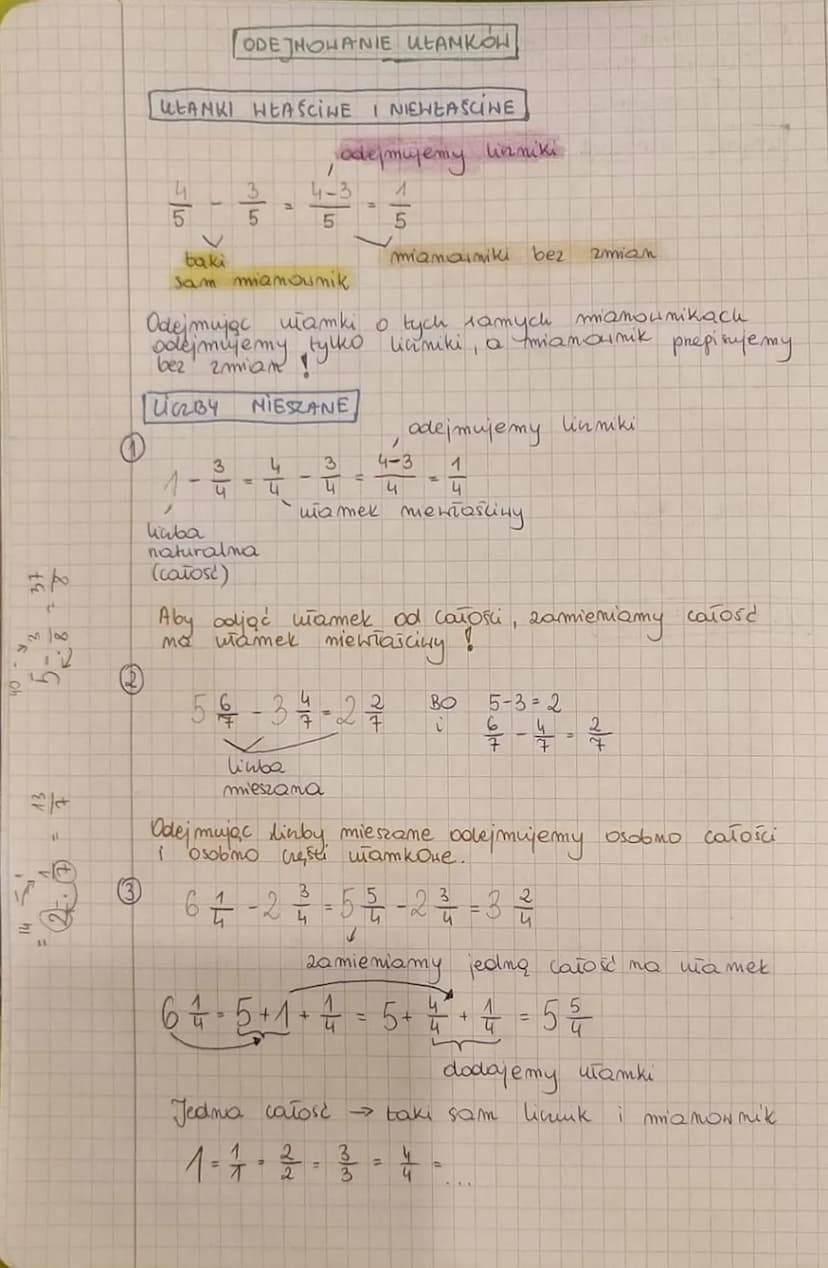 ODEJMOWANIE UŁAMKÓW
UŁAMKI WŁAŚCIWE I NIEWŁAŚCIWE
odejmujemy liczniki
4/5 - 3/5 = 4-3/5 = 1/5
taki
sam mianownik
mianowniki bez zmian
Odejmując ułamki o tych samych mianownikach
odejmujemy tylko liczniki, a mianownik przepisujemy
bez zmian!
LICZBY MIESZANE
① odejmujemy liczniki
1 - 3/4 = 4/4 - 3/4 = 4-3/4 = 1/4
ułamek niewłaściwy
liczba
naturalna
(całość)
Aby odjąć ułamek od całości, zamieniamy całość
na ułamek niewłaściwy!
②
5 6/7 - 3 4/7 = 2 2/7 BO 5-3=2
i 6/7 - 4/7 = 2/7
liczba
mieszana
Odejmując liczby mieszane odejmujemy osobno całości
i osobno części ułamkowe.
③ 6 1/4 - 2 3/4 = 5 5/4 - 2 3/4 = 3 2/4
zamieniamy jedną całość na ułamek
6 1/4 = 5+1 + 1/4 = 5+ 4/4 + 1/4 = 5 5/4
dodajemy ułamki
Jedna całość → taki sam licznik i mianownik
1 = 1/1 = 2/2 = 3/3 = 4/4 = ...